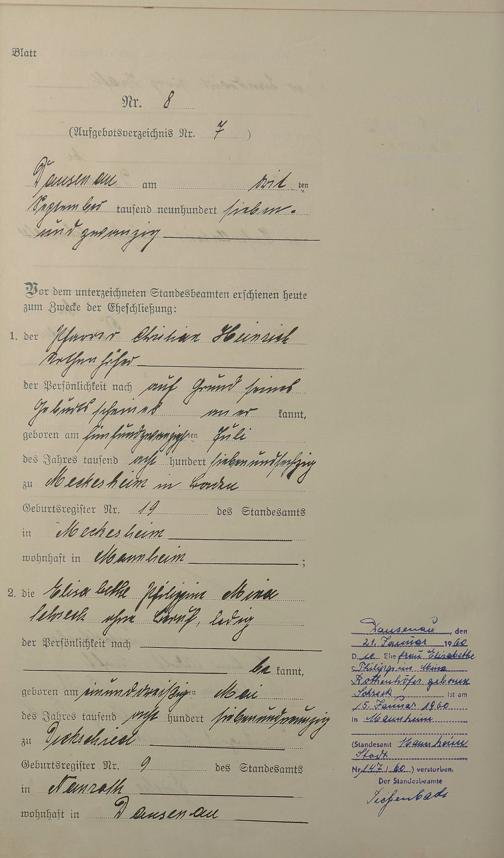 Blatt
Nr. 8
(Aufgebotsverzeichnis Nr. 7 )
Dausenau am drit ten
September tausend neunhundert sieben-
und zwanzig
Vor dem unterzeichneten Standesbeamten erschienen heute
zum Zwecke der Eheschließung:
1. der Pfarrer Christian Heinrich
Rothenhöfer
der Persönlichkeit nach auf Grund seines
Geburtsscheines an er kannt,
geboren am fünfundzwanzigsten Juli
des Jahres tausend acht hundert siebenundsechzig
zu Meckesheim in Baden
Geburtsregister Nr. 19 des Standesamts
in Meckesheim
wohnhaft in Mannheim ;
2. die Elisabethe Philippine Mina
Schreck ohne Beruf, ledig
der Persönlichkeit nach
be kannt,
geboren am einunddreißig Mai
des Jahres tausend acht hundert siebenundneunzig
zu
Geburtsregister Nr. 9 des Standesamts
in Nauroth
wohnhaft in Dausenau
Dausenau, den
21. Januar 1960
D ie Ehefrau Elisabethe
Philippine Mina
Rothenhöfer geborene
Schreck ist am
15. Januar 1960
in Mannheim
(Standesamt Mannheim
Stadt
Nr. 147 / 60 ) verstorben.
Der Standesbeamte